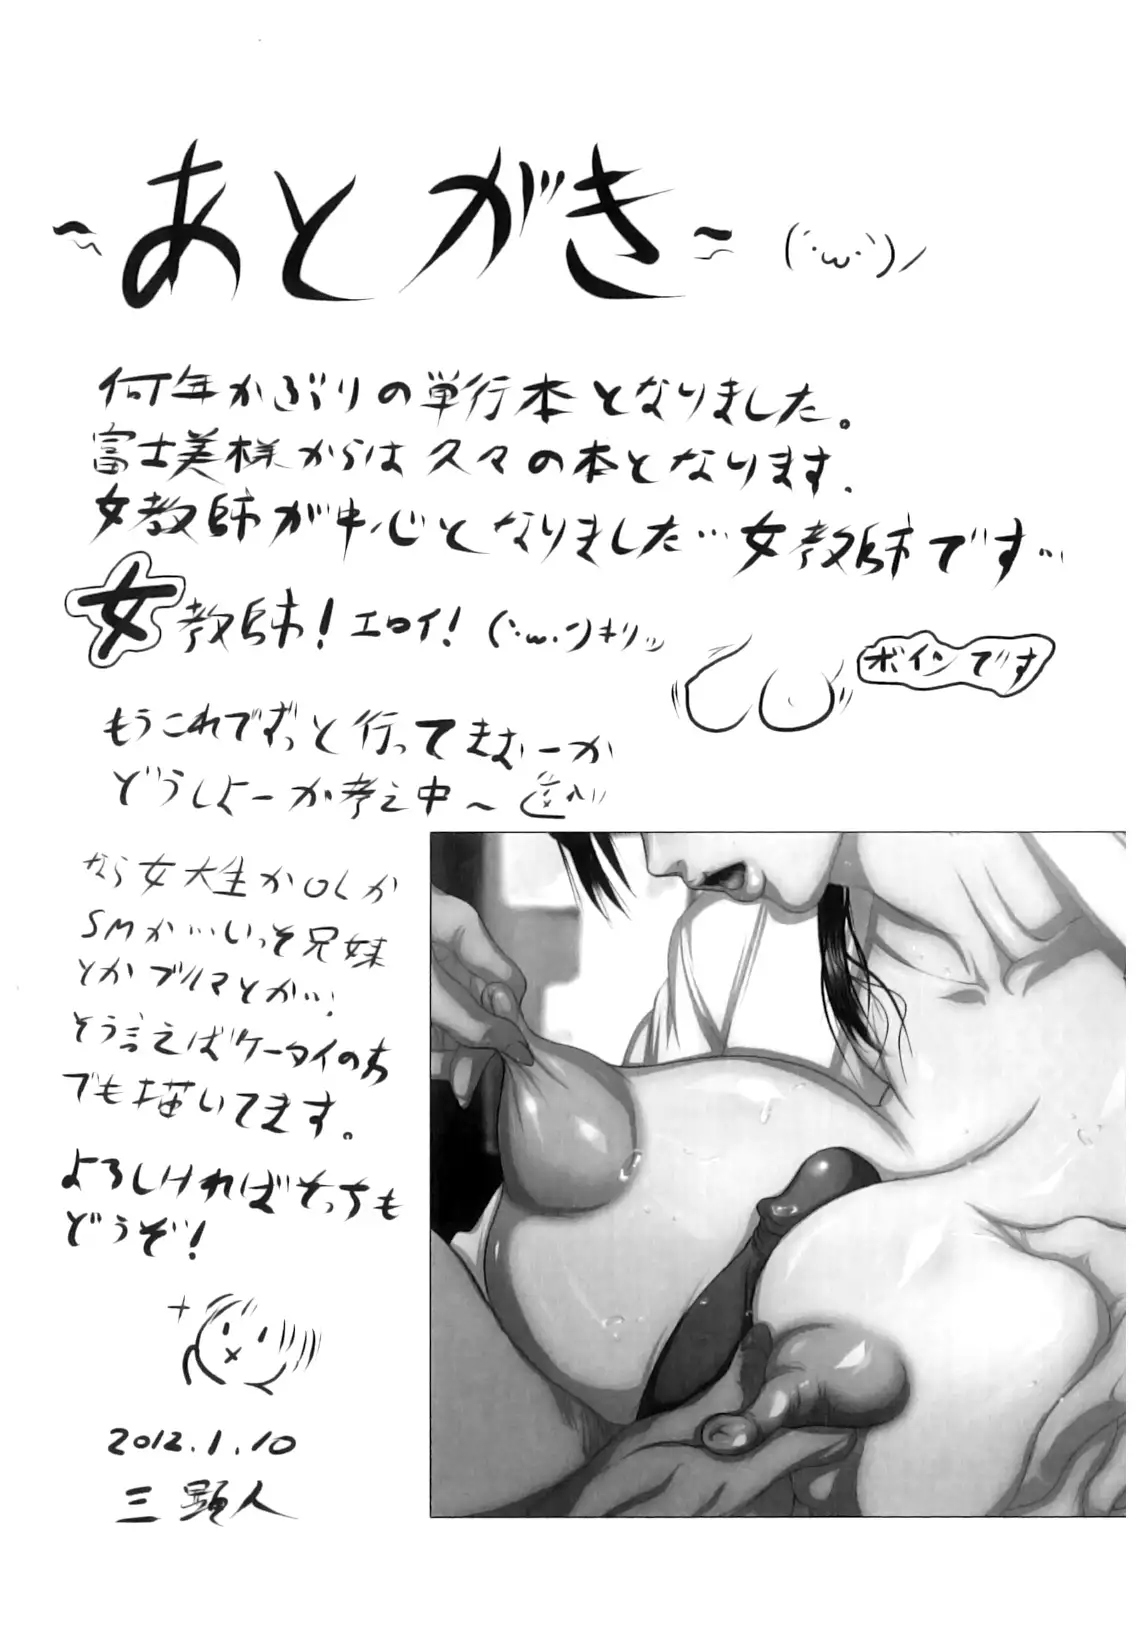 ～あとがき～(´・ω・`)ノ
何年かぶりの単行本となりました。
富士美様からは久々の本となります.
女教師が中心となりました…女教師です…
女教師！エロイ！(`・ω・´)キリッ
ボインです
もうこれでずっと行ってきむーか
どうしよーか考え中～
なら女大生かOLか
SMか…いっそ兄妹
とかブルマとか…！
そう言えばケータイの方
でも描いてます。
よろしければそっちも
どうぞ！
2012.1.10
三顕人